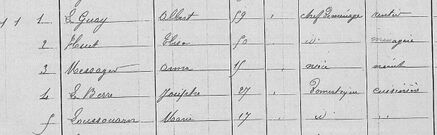 1 1 1 Le Guay Albert 59 " chef de ménage rentier
2 Huet Elisa 50 " id ménagère
3 Messager Anna 15 " nièce néant
4 Le Berre Josèphe 27 " domestique cuisinière
5 Goussouarn Marie 17 " id "